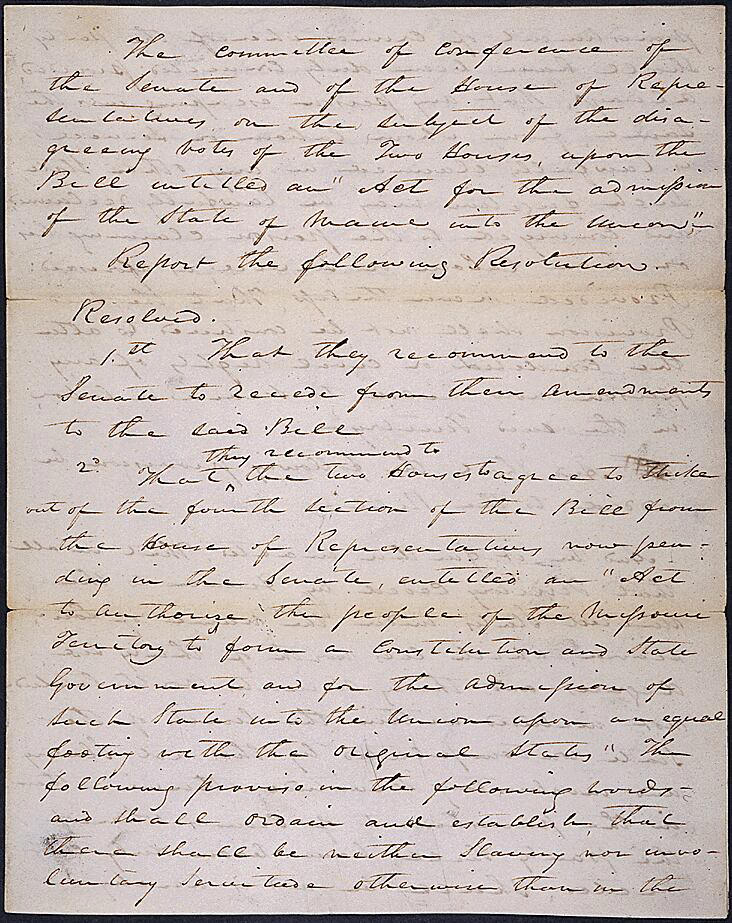 The committee of conference of
the Senate and of the House of Repre-
sentatives on the subject of the disa-
greeing votes of the Two Houses, upon the
Bill entitled an "Act for the admission
of the State of Maine into the Union,"
Report the following Resolution.
Resolved.
1st That they recommend to the
Senate to recede from their amendments
to the said Bill
they recommend to
2d That ^ the two Houses to agree to strike
out of the fourth section of the Bill from
the House of Representatives now pen-
ding in the Senate, entitled an "Act
to authorize the people of the Missouri
Territory to form a Constitution and State
Government and for the admission of
such State into the Union upon an equal
footing with the original States" The
following proviso in the following words-
and shall ordain and establish, that
there shall be neither Slavery nor invo-
luntary Servitude otherwise than in the